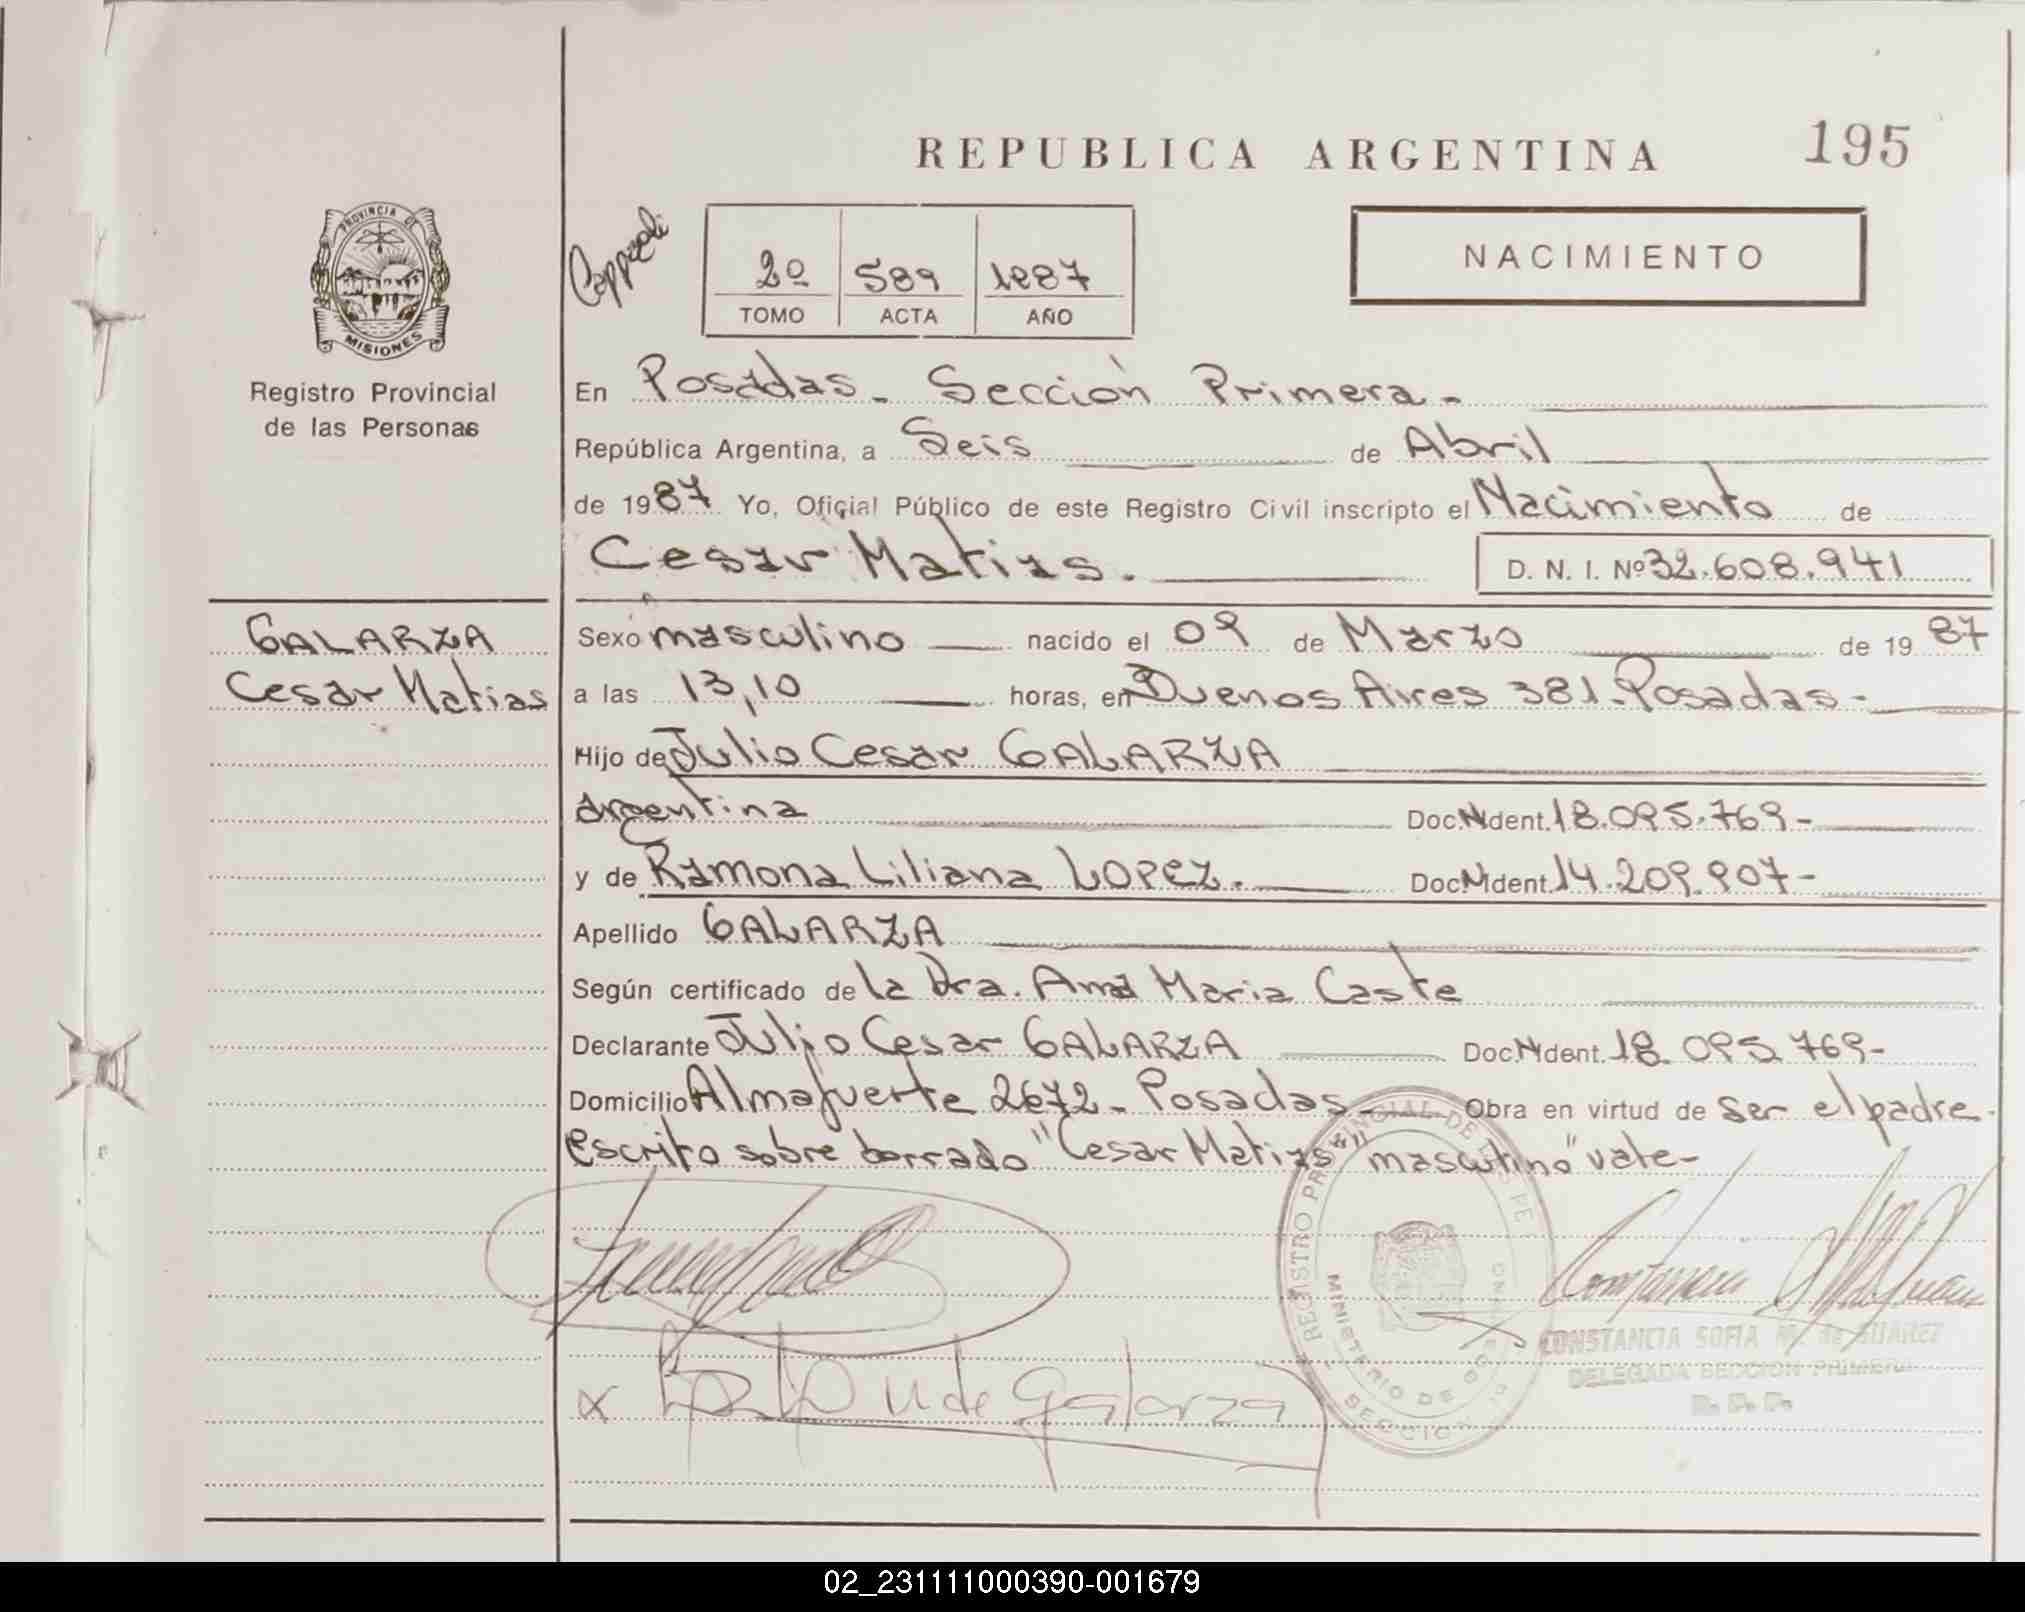 REPUBLICA ARGENTINA 195
PROVINCIA DE
MISIONES
Registro Provincial
de las Personas
2º 589 1987
TOMO ACTA AÑO
NACIMIENTO
En Posadas - Sección Primera -
República Argentina, a Seis de Abril
de 1987 Yo, Oficial Público de este Registro Civil inscripto el Nacimiento de
Cesar Matias.
D. N. I. Nº 32.608.941
GALARZA
Cesar Matias
Sexo masculino nacido el 09 de Marzo de 1987
a las 13,10 horas, en Buenos Aires 381 - Posadas -
Hijo de Julio Cesar GALARZA
argentina Doc. Ident. 18.095.769 -
y de Ramona Liliana LOPEZ. Doc. Ident. 14.209.907 -
Apellido GALARZA
Según certificado de la Dra. Ana Maria Caste
Declarante Julio Cesar GALARZA Doc. Ident. 18.095.769 -
Domicilio Almafuerte 2672 - Posadas - Obra en virtud de ser el padre -
escrito sobre borrado "Cesar Matias" "masculino" vale -
REGISTRO PROVINCIAL DE LAS PE
MINISTERIO DE GOBIERNO
SECCION
CONSTANCIA SOFIA M. de SUAREZ
DELEGADA SECCION PRIMERA
x de Galarza
02_231111000390-001679